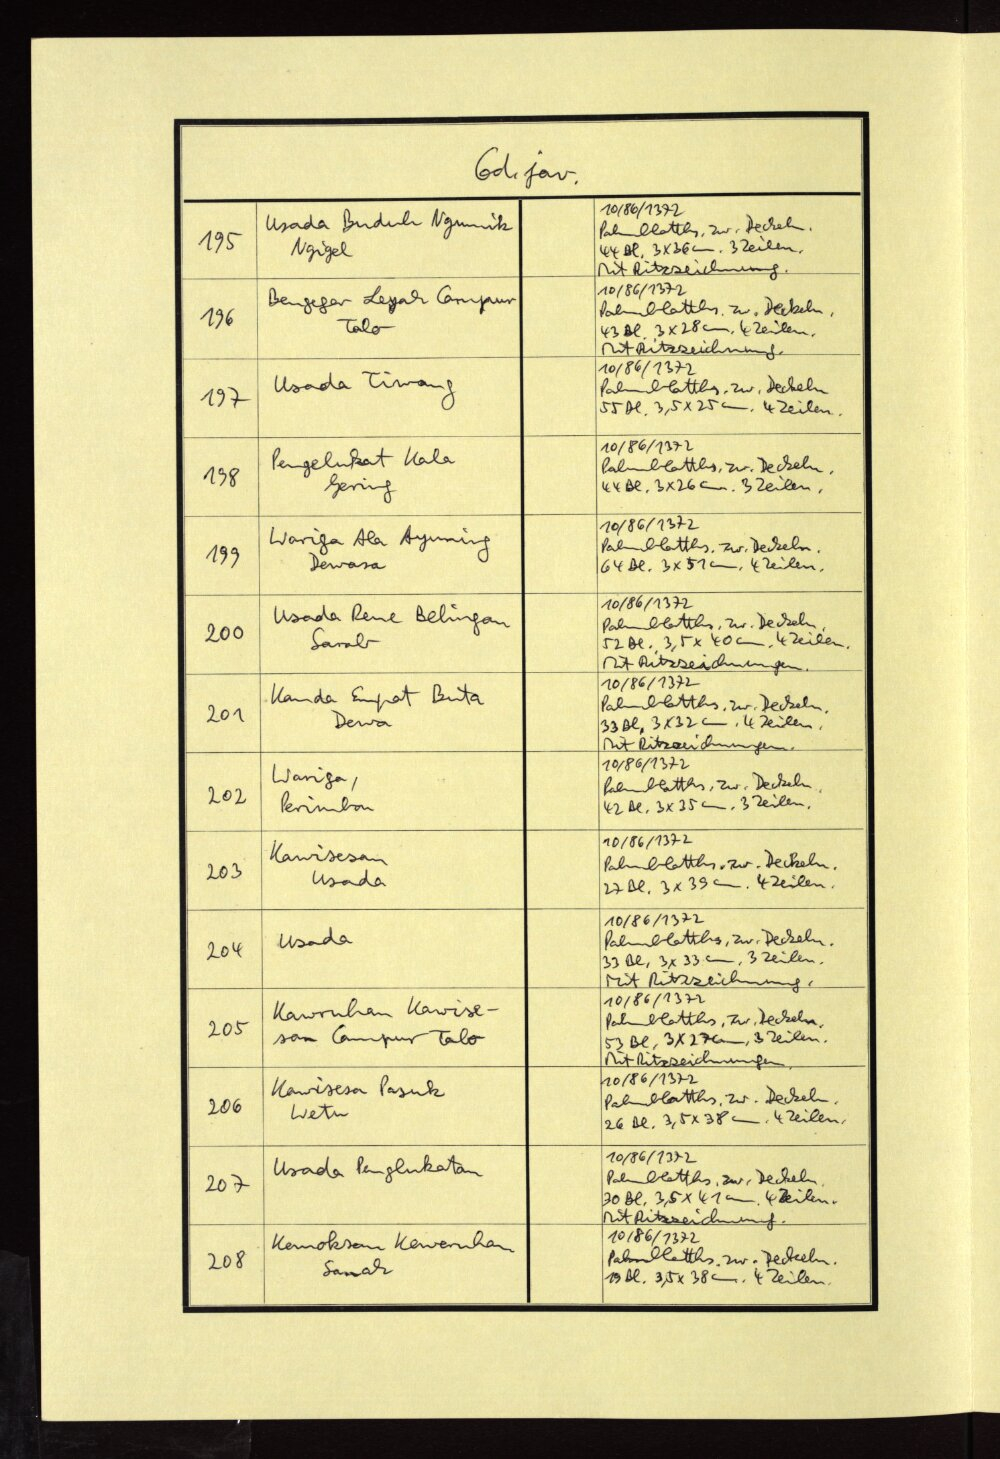 Cod. jav.
195
Usada Buduh Ngumik
Ngigel
10/86/1372
Palmblatths. zw. Deckeln.
44 Bl. 3x36 cm. 3 Zeilen.
Mit Ritzzeichnung.
196
Bengegar Leyak Campur
Talo
10/86/1372
Palmblatths. zw. Deckeln.
43 Bl. 3x28 cm. 4 Zeilen.
Mit Ritzzeichnung.
197
Usada Tiwang
10/86/1372
Palmblatths. zw. Deckeln
55 Bl. 3,5x25 cm. 4 Zeilen.
198
Pengelukat Kala
Gering
10/86/1372
Palmblatths. zw. Deckeln.
44 Bl. 3x26 cm. 3 Zeilen.
199
Wariga Ala Ayuning
Dewasa
10/86/1372
Palmblatths. zw. Deckeln.
64 Bl. 3x51 cm. 4 Zeilen.
200
Usada Rene Belingan
10/86/1372
Palmblatths. zw. Deckeln.
52 Bl. 3,5x40 cm. 4 Zeilen.
Mit Ritzzeichnungen.
201
Kanda Empat Buta
Dewa
10/86/1372
Palmblatths. zw. Deckeln.
33 Bl. 3x32 cm. 4 Zeilen.
Mit Ritzzeichnungen.
202
Wariga,
Perimbon
10/86/1372
Palmblatths. zw. Deckeln.
42 Bl. 3x35 cm. 3 Zeilen.
203
Kawisesan
Usada
10/86/1372
Palmblatths. zw. Deckeln.
27 Bl. 3x39 cm. 4 Zeilen.
204
Usada
10/86/1372
Palmblatths. zw. Deckeln.
33 Bl. 3x33 cm. 3 Zeilen.
Mit Ritzzeichnung.
205
Kawruhan Kawise-
san Campur Talo
10/86/1372
Palmblatths. zw. Deckeln.
53 Bl. 3x27 cm. 3 Zeilen.
Mit Ritzzeichnungen
206
Kawisesa Pasuk
Wetu
10/86/1372
Palmblatths. zw. Deckeln.
26 Bl. 3,5x38 cm. 4 Zeilen.
207
Usada Penglukatan
10/86/1372
Palmblatths. zw. Deckeln.
70 Bl. 3,5x41 cm. 4 Zeilen.
Mit Ritzzeichnung.
208
Kamoksan Kaweruhan
Sanak
10/86/1372
Palmblatths. zw. Deckeln.
19 Bl. 3,5x38 cm. 4 Zeilen.